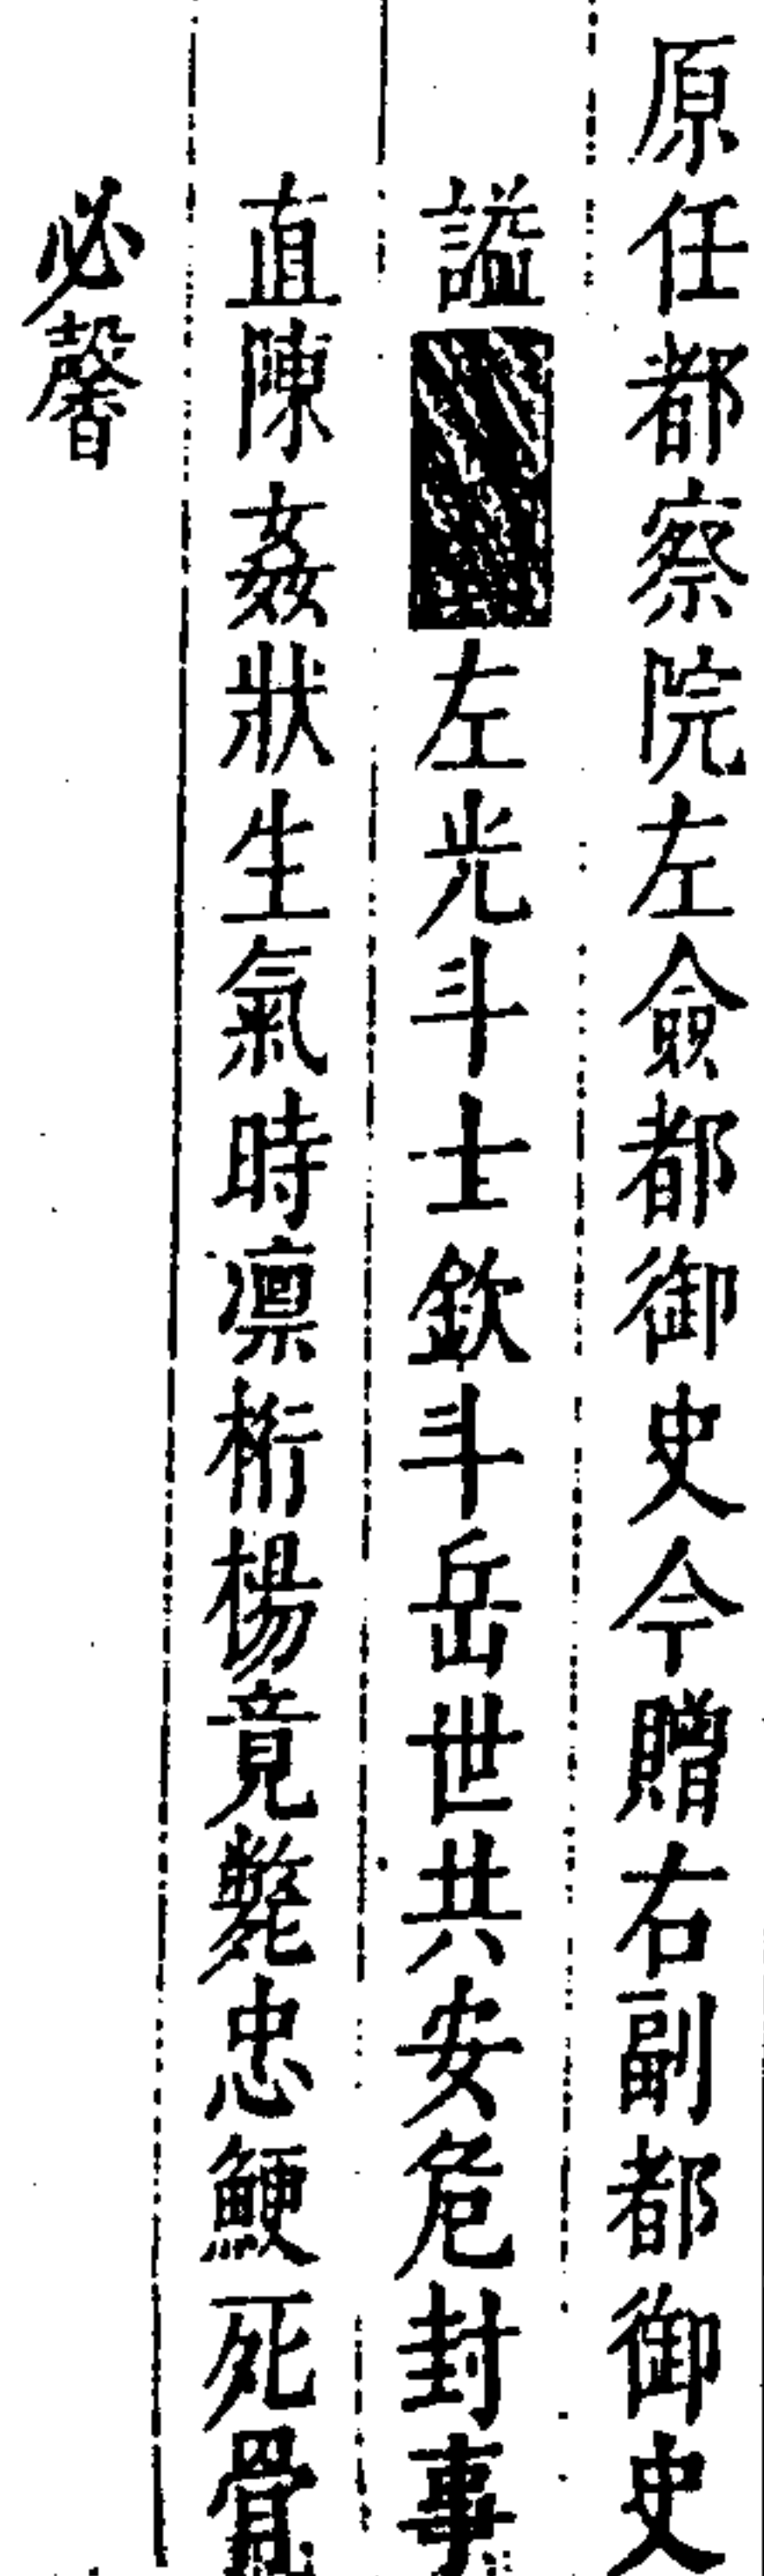 原任都察院左僉都御史今贈右副都御史
諡左光斗士欽斗岳世共安危封事
直陳姦狀生氣時凛桁楊竟斃忠鯁死骨
必馨